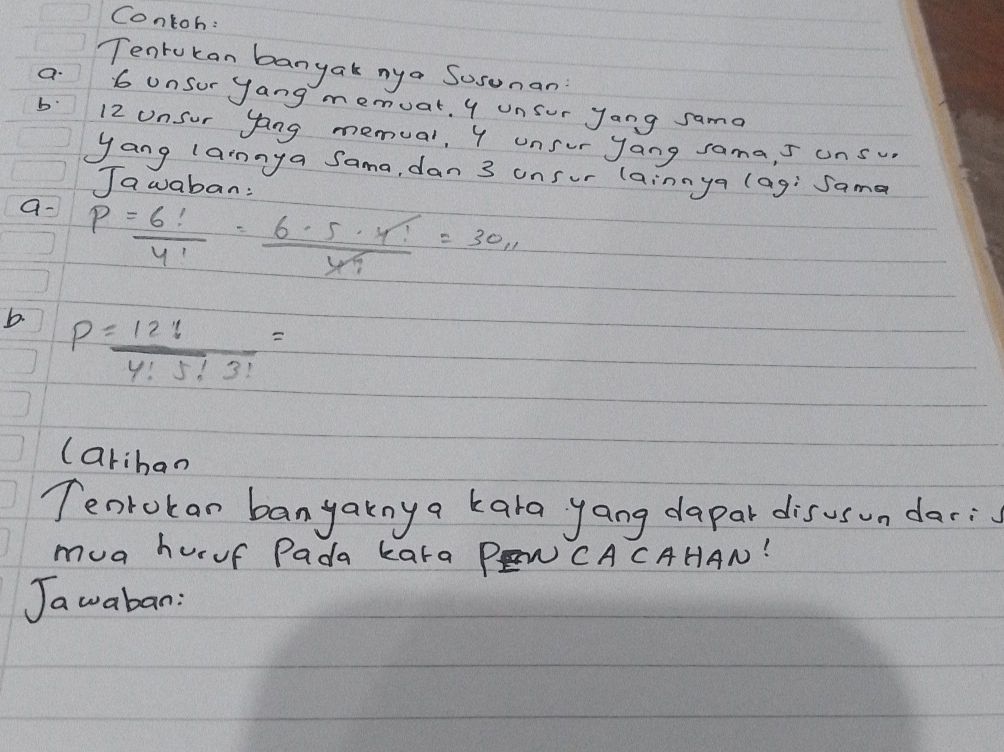 Contoh:
Tentukan banyak nya Susunan:
a. 6 unsur yang memuat. 4 unsur yang sama
b. 12 unsur yang memuat, 4 unsur yang sama, 5 unsur
yang lainnya sama, dan 3 unsur lainnya lagi sama
Jawaban:
a- P = 6!/4! = 6·5·4!/4! = 30,,
b. P = 12!/4! 5! 3! =
Latihan
Tentukan banyaknya kata yang dapat disusun dari s
mua huruf Pada kata PENCACAHAN!
Jawaban: